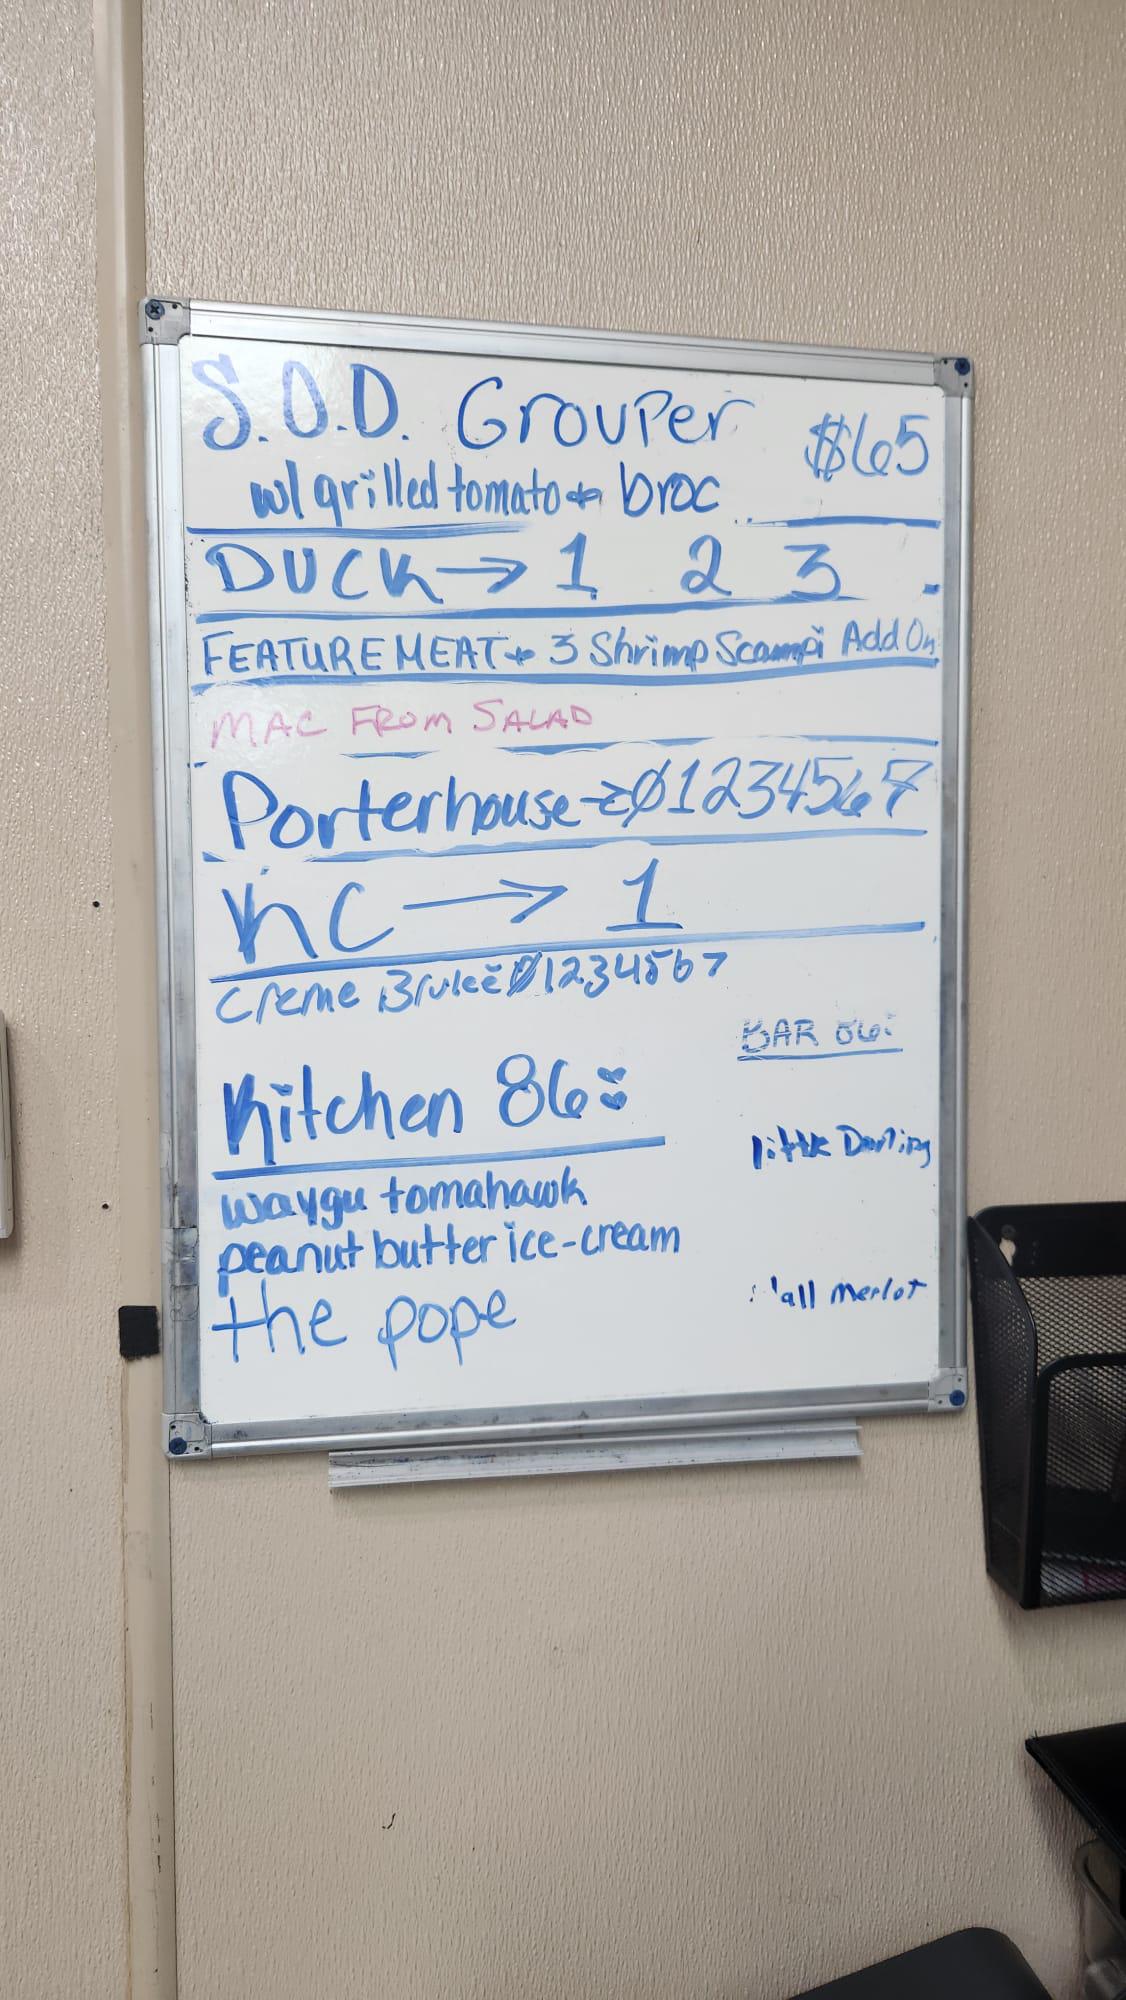 S.O.D. Grouper $65
w/ grilled tomato + broc
DUCK → 1 2 3
FEATURE MEAT + 3 Shrimp Scampi Add On
MAC FROM SALAD
Porterhouse → Ø 1 2 3 4 5 6 7
KC → 1
Creme Brulee Ø 1 2 3 4 5 6 7
BAR 86:
Kitchen 86:
little Darling
waygu tomahawk
peanut butter ice-cream
all merlot
the pope